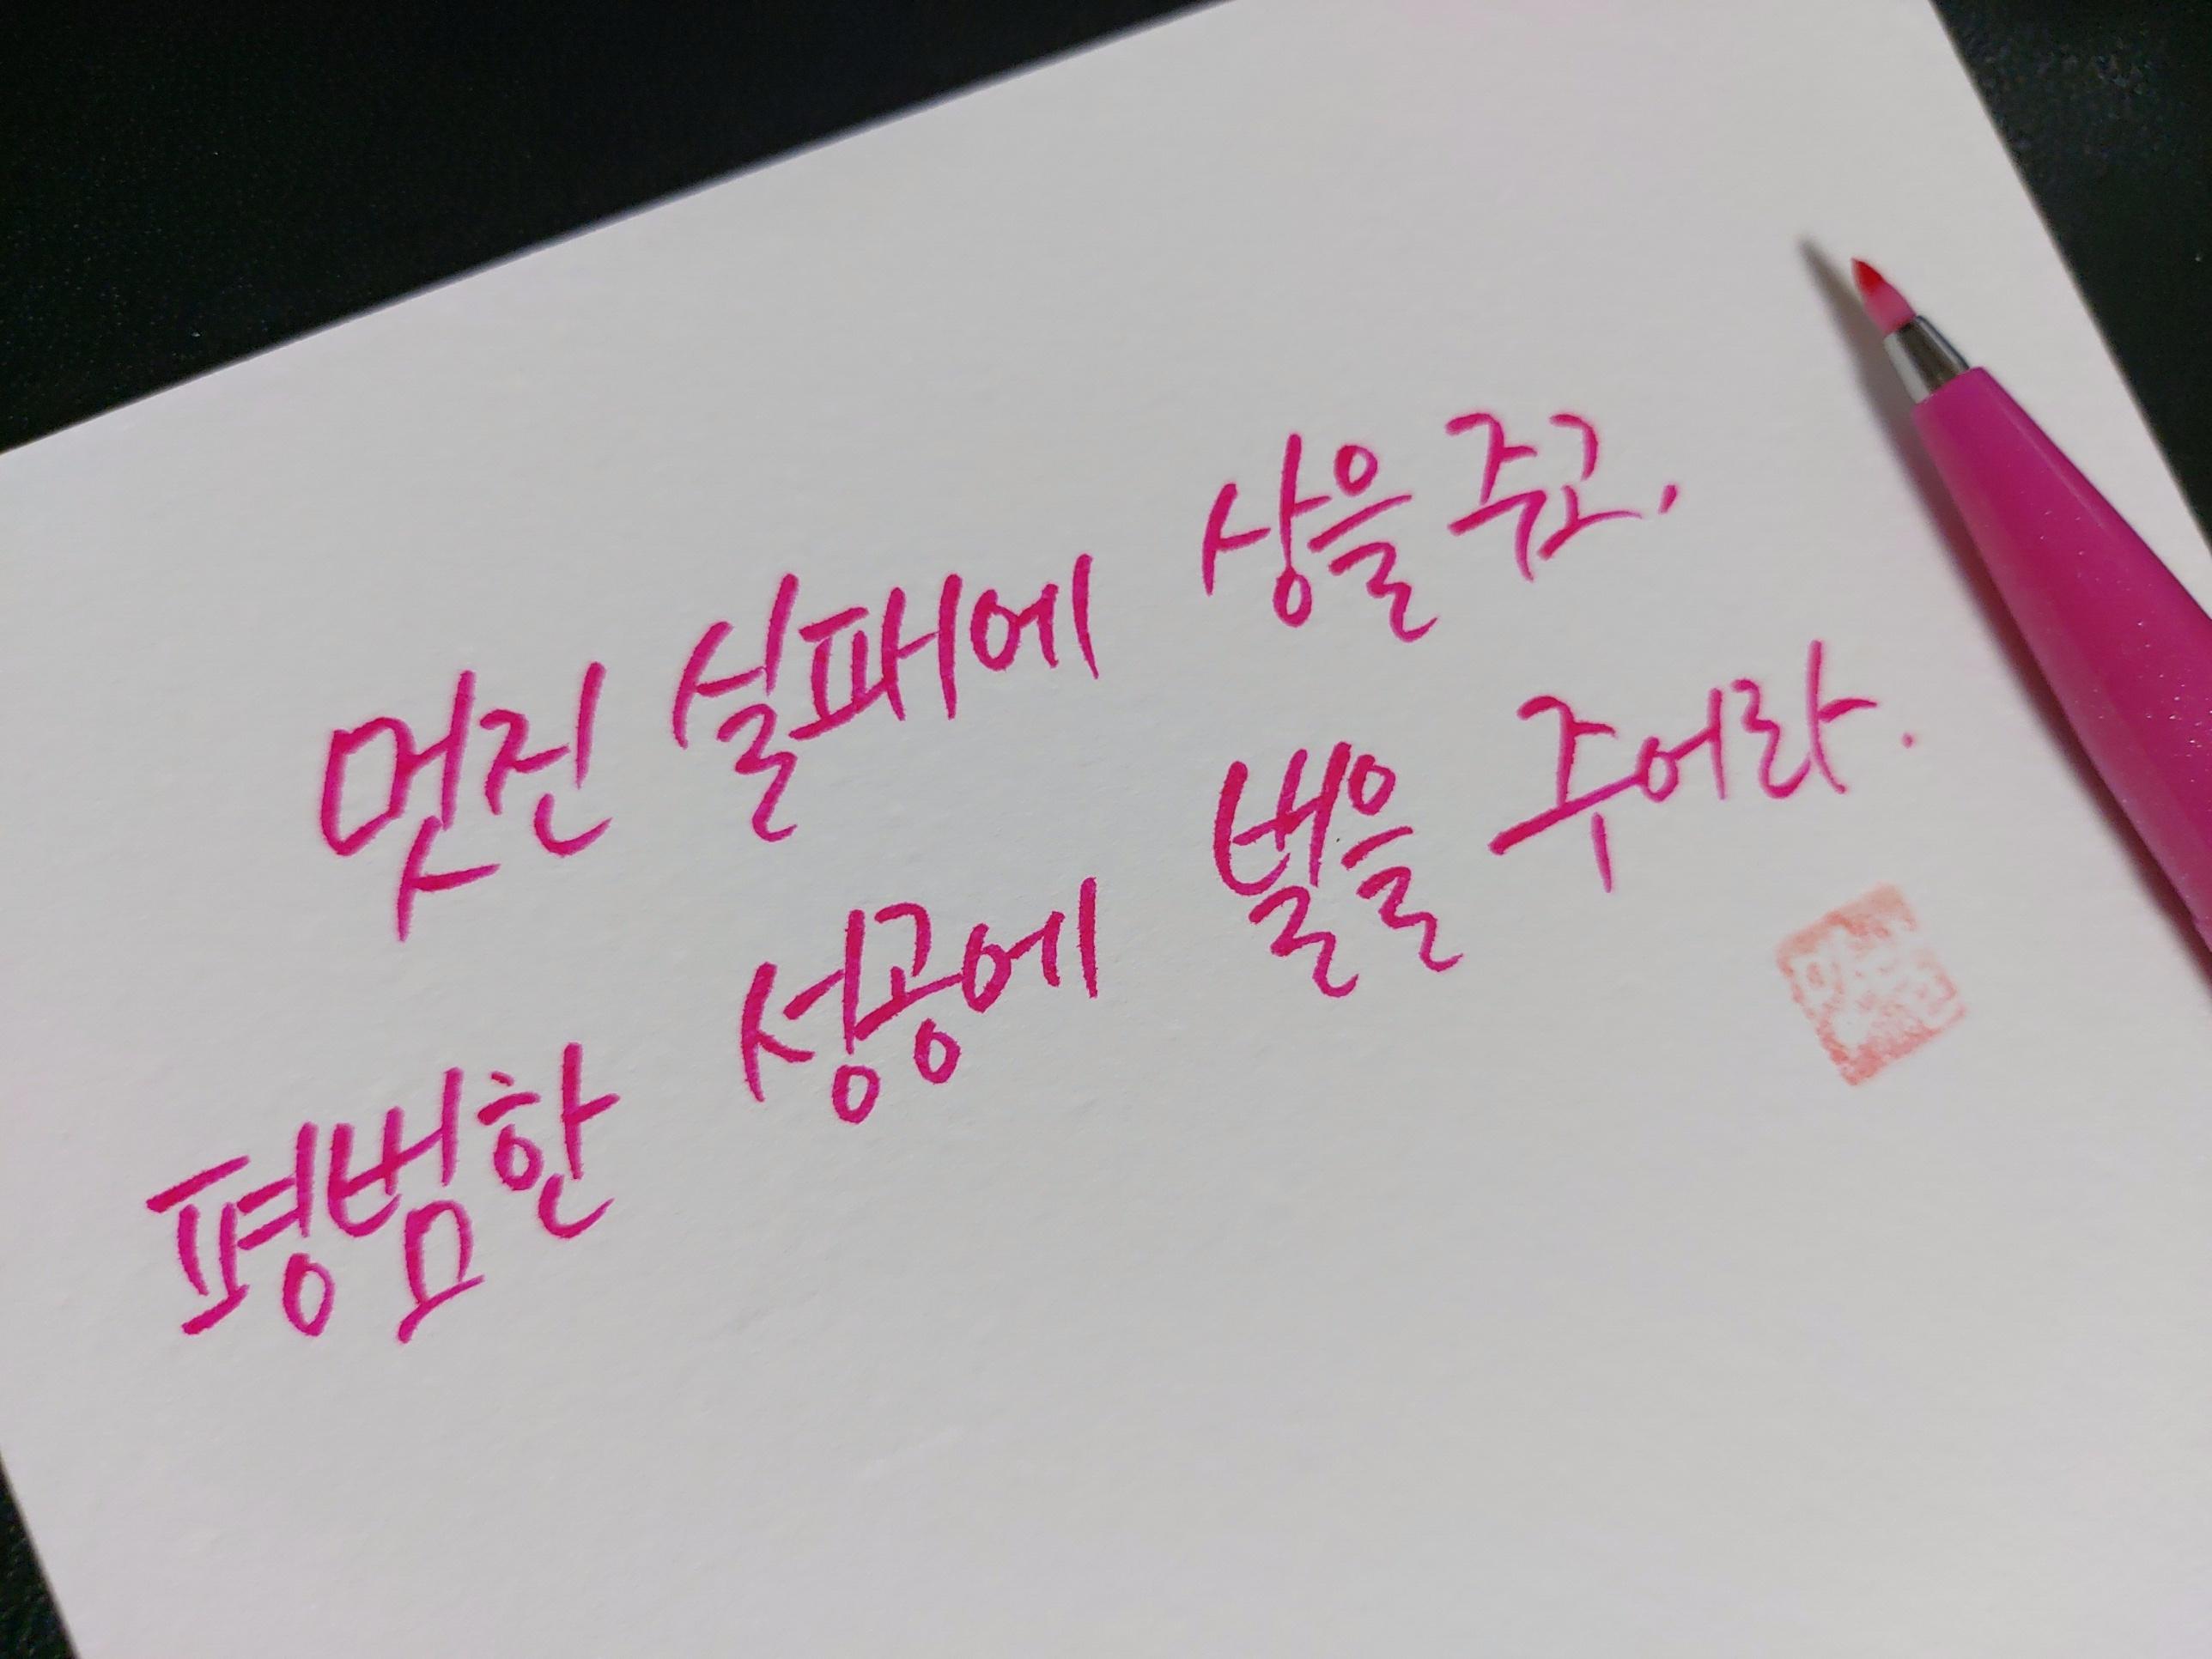 멋진 실패에 상을 주고,
평범한 성공에 벌을 주어라.